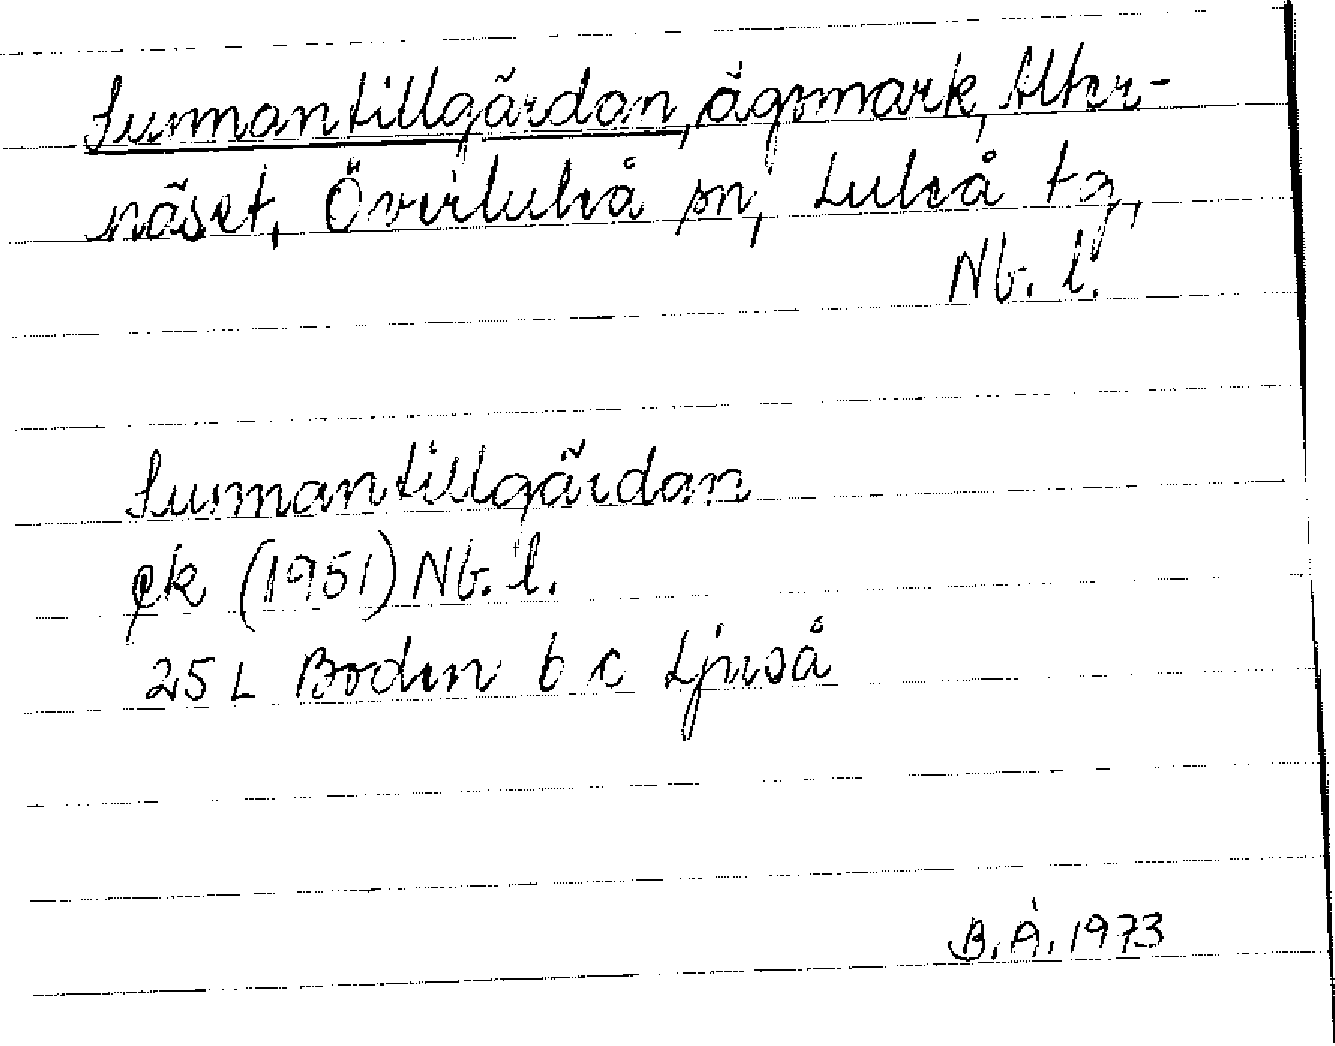 Sunnantillgärdan, ägomark, Alter-
näset, Överluleå sn, Luleå tg,
Nb. l.
Sunnantillgärdan
ek (1951) Nb. l.
25 L Boden b c Ljuså
B.Å. 1973